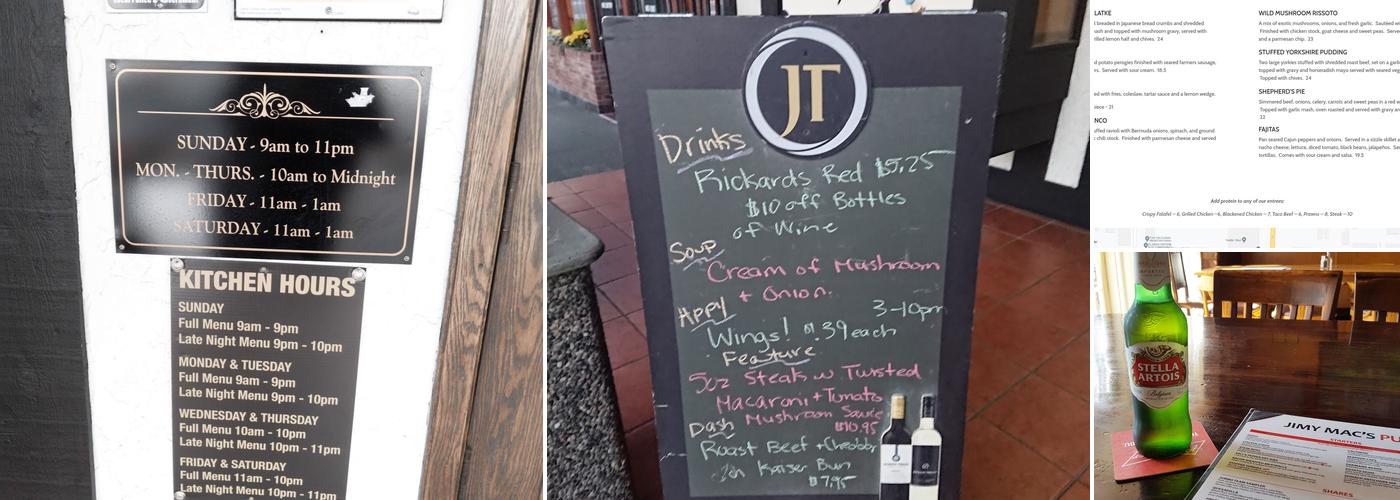 SUNDAY - 9am to 11pm
MON. - THURS. - 10am to Midnight
FRIDAY - 11am - 1am
SATURDAY - 11am - 1am
KITCHEN HOURS
SUNDAY
Full Menu 9am - 9pm
Late Night Menu 9pm - 10pm
MONDAY & TUESDAY
Full Menu 9am - 9pm
Late Night Menu 9pm - 10pm
WEDNESDAY & THURSDAY
Full Menu 10am - 10pm
Late Night Menu 10pm - 11pm
FRIDAY & SATURDAY
Full Menu 11am - 10pm
Late Night Menu 10pm - 11pm
JT
Drinks
Rickards Red $5.25
$10 off Bottles
of Wine
Soup
Cream of Mushroom
+ Onion.
Appy 3-10pm
Wings! $.39 each
Feature
5oz Steak w Twisted
Macaroni + Tomato
Mushroom Sauce
$10.95
Dash
Roast Beef + Cheddar
Kaiser Bun
$7.95
LATKE
breaded in Japanese bread crumbs and shredded
ash and topped with mushroom gravy, served with
rilled lemon half and chives. 24
d potato perogies finished with seared farmers sausage,
rs. Served with sour cream. 18.5
ed with fries, coleslaw, tartar sauce and a lemon wedge.
iece - 21
NCO
uffed ravioli with Bermuda onions, spinach, and ground
c chili stock. Finished with parmesan cheese and served
WILD MUSHROOM RISSOTO
A mix of exotic mushrooms, onions, and fresh garlic. Sautéed wi
Finished with chicken stock, goat cheese and sweet peas. Serve
and a parmesan chip. 23
STUFFED YORKSHIRE PUDDING
Two large yorkies stuffed with shredded roast beef, set on a garli
topped with gravy and horseradish mayo served with seared veg
Topped with chives. 24
SHEPHERD'S PIE
Simmered beef, onions, celery, carrots and sweet peas in a red w
Topped with garlic mash, oven roasted and served with gravy an
22
FAJITAS
Pan seared Cajun peppers and onions. Served in a sizzle skillet a
nacho cheese, lettuce, diced tomato, black beans, jalapeños. Se
tortillas. Comes with sour cream and salsa. 19.5
Add protein to any of our entrees:
Crispy Falafel – 6, Grilled Chicken –6, Blackened Chicken – 7, Taco Beef – 6, Prawns – 8, Steak –10
STELLA
ARTOIS
Belgium
JIMY MAC'S PU
STARTERS
SHARES